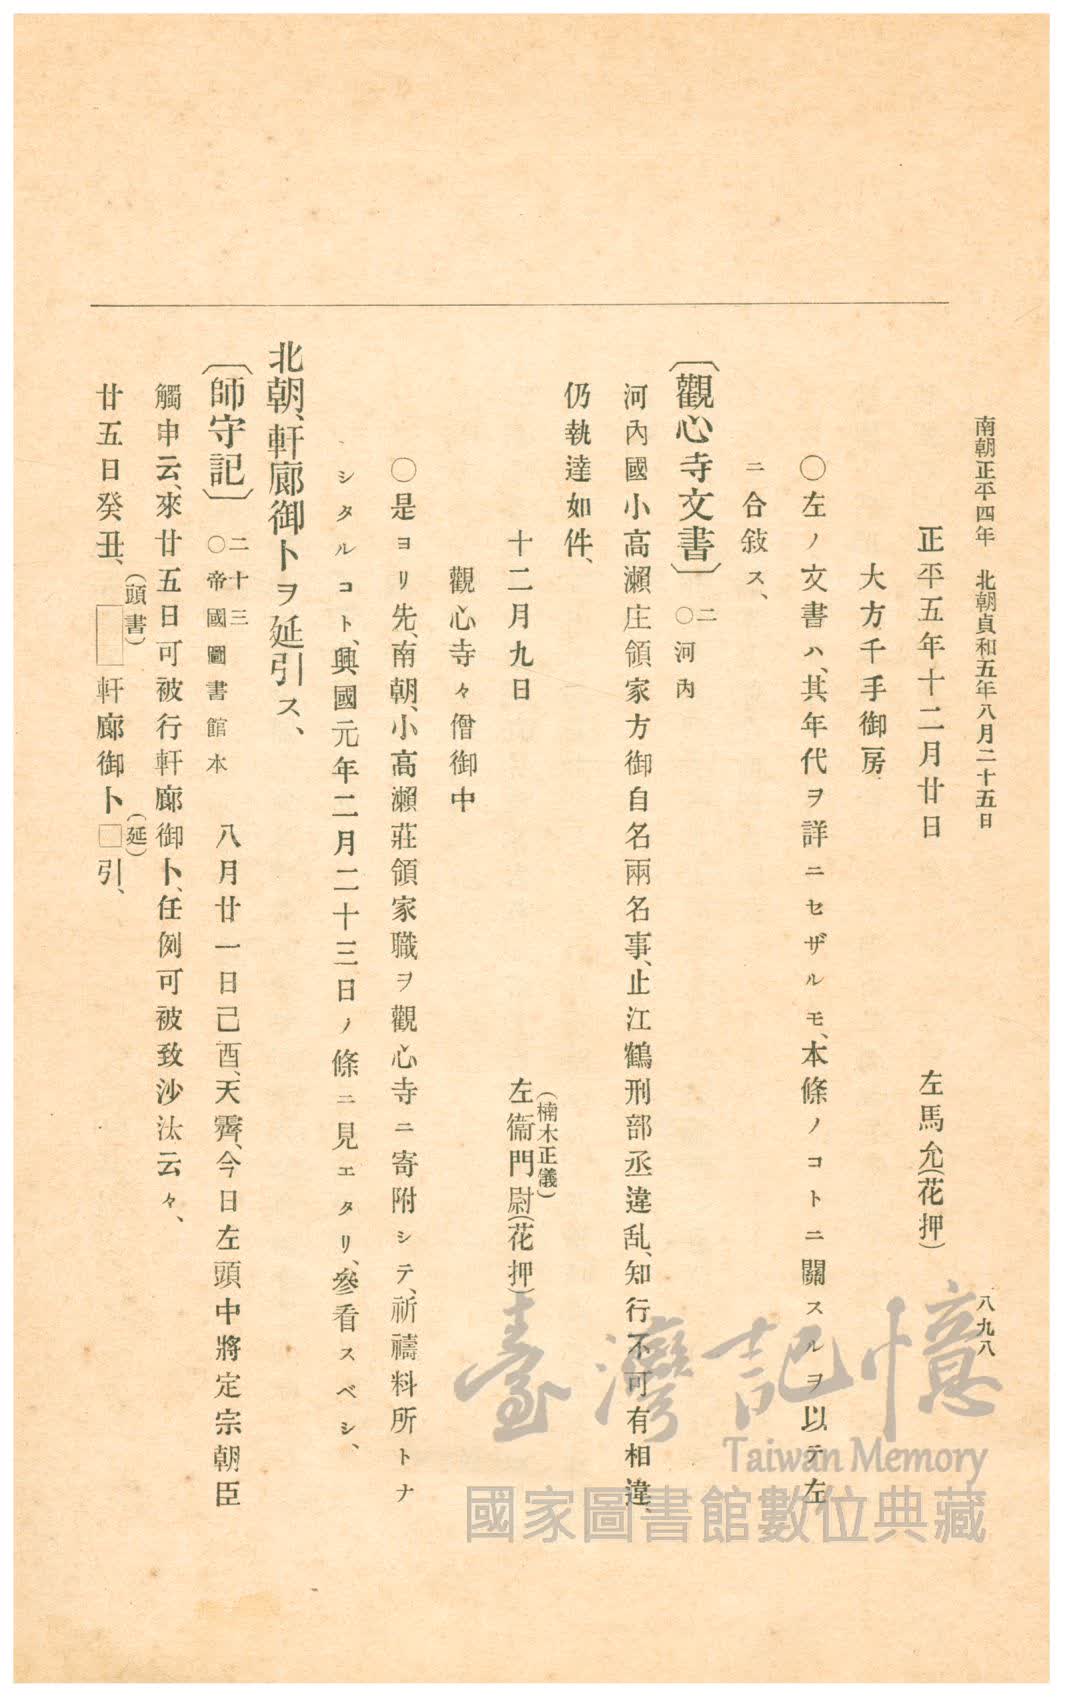 南朝正平四年　北朝貞和五年八月二十五日
八九八
正平五年十二月廿日　左馬允(花押)
大方千手御房
〇左ノ文書ハ、其年代ヲ詳ニセザルモ、本條ノコトニ關スルヲ以テ左
ニ合敍ス、
〔觀心寺文書〕二〇河內
河內國小高瀨庄領家方御自名兩名事、止江鶴刑部丞違乱、知行不可有相違、
仍執達如件、
十二月九日　左衞門尉(花押)
(楠木正儀)
觀心寺々僧御中
〇是ヨリ先、南朝、小高瀨莊領家職ヲ觀心寺ニ寄附シテ、祈禱料所トナ
シタルコト、興國元年二月二十三日ノ條ニ見エタリ、參看スベシ、
北朝、軒廊御卜ヲ延引ス、
〔師守記〕二十三〇帝國圖書館本　八月廿一日己酉、天霽、今日左頭中將定宗朝臣
觸申云、來廿五日可被行軒廊御卜、任例可被致沙汰云々、
(頭書)　(延)
廿五日癸丑、□軒廊御卜□引、
臺灣記憶
Taiwan Memory
國家圖書館數位典藏